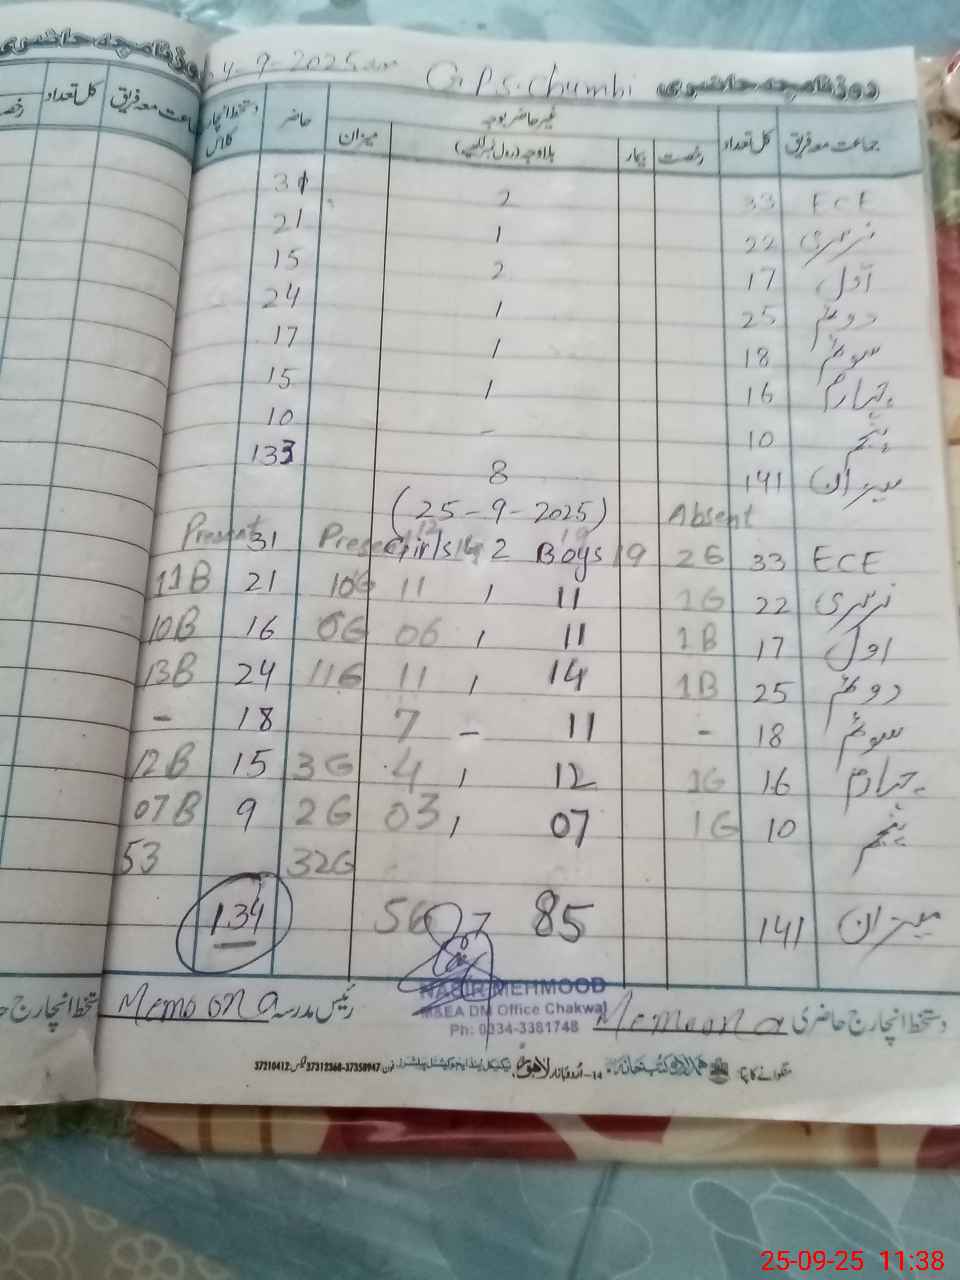 روزنامچہ حاضری G.P.S. Chumbi 4-9-2025
جماعت معہ فریق کل تعداد غیر حاضر بوجہ حاضر دستخط انچارج کلاس
رخصت بیمار بلاوجہ (رول نمبر لکھیے) میزان
ECE 33 2 31
نرسری 22 1 21
اول 17 2 15
دوئم 25 1 24
سوئم 18 1 17
چہارم 16 1 15
پنجم 10 - 10
میزان 141 8 133
Absent (25-9-2025) Present
ECE 33 2G 19 Boys 2 Girls 14 31
نرسری 22 1G 11 1 11 10G 21 11B
اول 17 1B 11 1 06 06G 16 10B
دوئم 25 1B 14 1 11 11G 24 13B
سوئم 18 - 11 - 7 18 -
چہارم 16 1G 12 1 4 3G 15 12B
پنجم 10 1G 07 1 03 2G 9 07B
32G 53
میزان 141 85 07 56 134
NASIR MEHMOOD
M&EA DM Office Chakwal
Ph: 0334-3381748
دستخط انچارج حاضری Memoona رئیس مدرسہ Memoona
37210412 37312368-37358947
کل تعداد
25-09-25 11:38